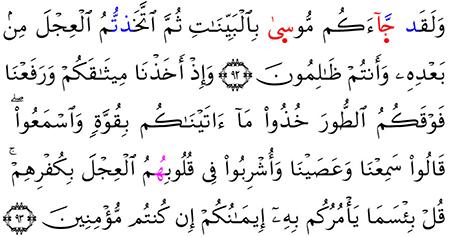 وَلَقَد جَّآءَكُم مُّوسىٰ بِالْبَيِّنَاتِ ثُمَّ ٱتَّخَذتُّمُ ٱلْعِجْلَ مِنۢ
بَعْدِهِۦ وَأَنتُمْ ظَـٰلِمُونَ ۝٩٢ وَإِذْ أَخَذْنَا مِيثَـٰقَكُمْ وَرَفَعْنَا
فَوْقَكُمُ ٱلطُّورَ خُذُوا۟ مَآ ءَاتَيْنَـٰكُم بِقُوَّةٍ وَٱسْمَعُوا۟ ۖ
قَالُوا۟ سَمِعْنَا وَعَصَيْنَا وَأُشْرِبُوا۟ فِى قُلُوبِهُمُ ٱلْعِجْلَ بِكُفْرِهِمْ ۚ
قُلْ بِئْسَمَا يَأْمُرُكُم بِهِۦٓ إِيمَـٰنُكُمْ إِن كُنتُم مُّؤْمِنِينَ ۝٩٣